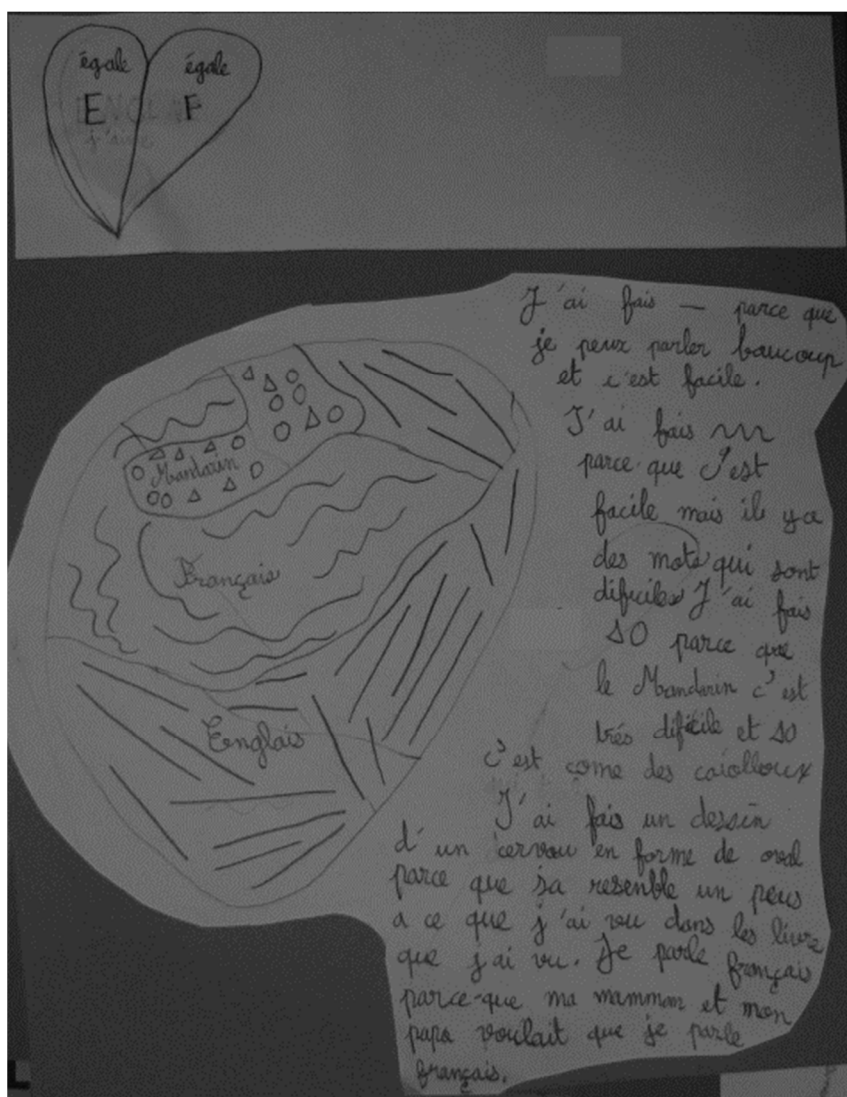 égale égale
E F
J'ai fais — parce que
je peux parler baucoup
et c'est facile.
J'ai fais
parce que c'est
facile mais il y a
des mots qui sont
dificiles J'ai fais
△O parce que
le Mandarin c'est
trés dificile et △O
c'est come des caiolloux
J'ai fais un dessin
d'un cervau en forme de oval
parce que sa resenble un peus
a ce que j'ai vu dans les livre
que j'ai vu. Je parle français
parce-que ma mamman et mon
papa voulait que je parle
français.
Mandarin
Français
Englais